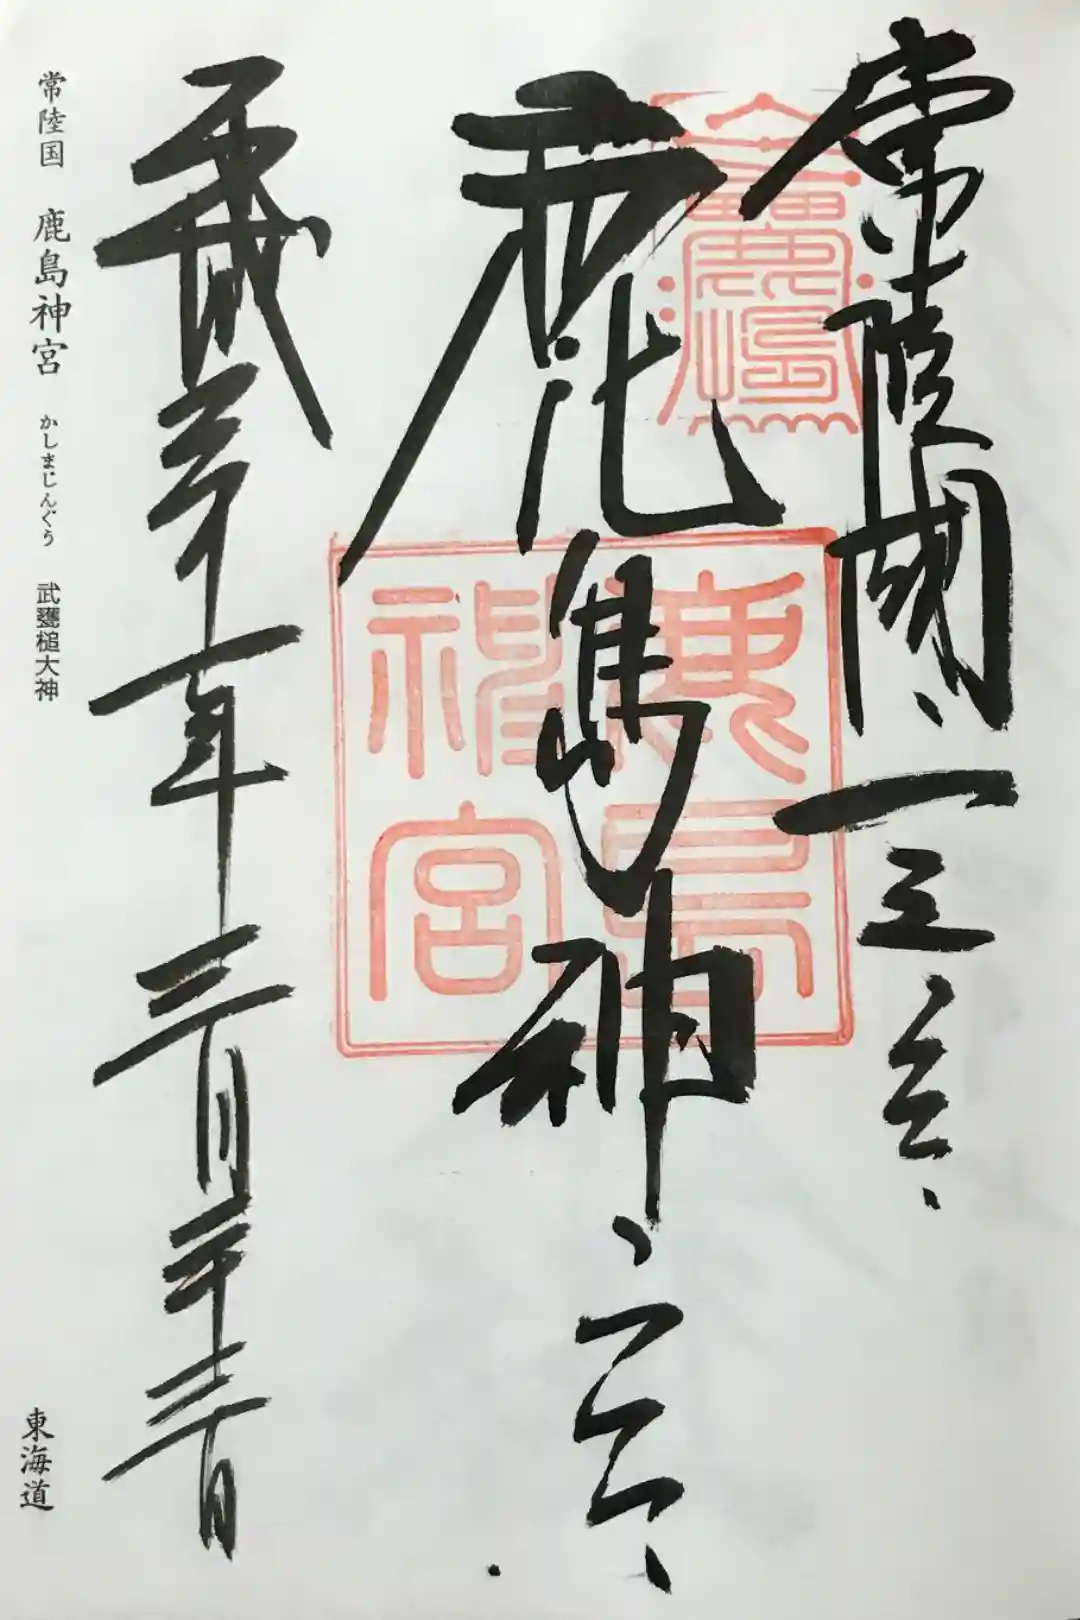 常陸國一之宮
鹿島神宮
鹿島神宮
平成三十一年三月二十三日
常陸国 鹿島神宮 かしまじんぐう 武甕槌大神
東海道